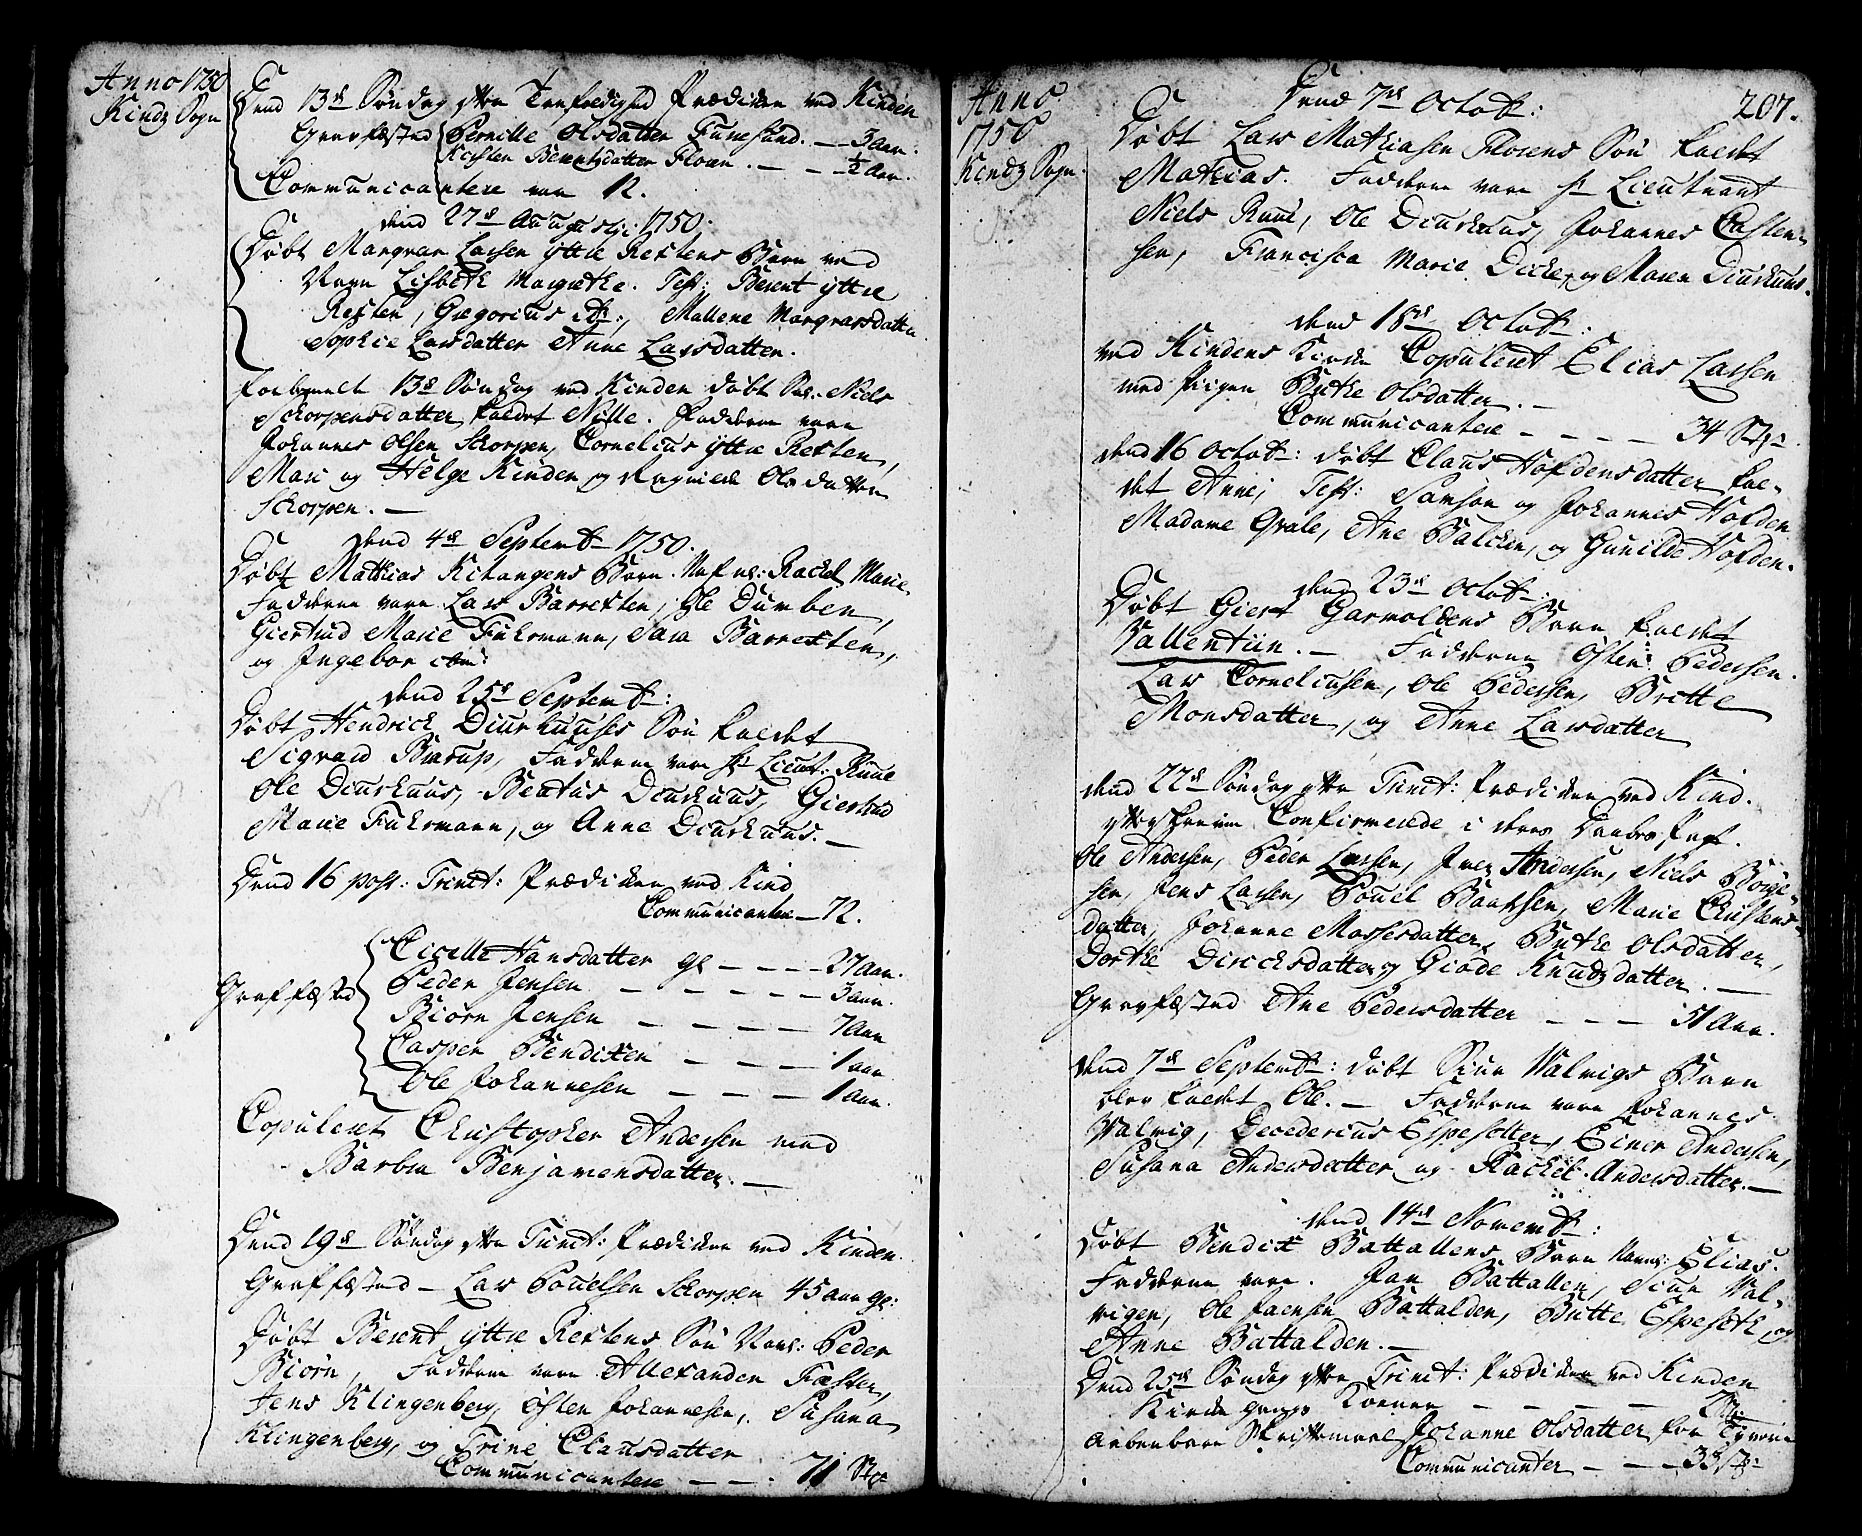 Anno 1750
Kindz Sogn
Dend 13de Søndag efter Trefoldighed Prædiken ved Kinden
Graffæsted Pernille Olsdatter Funesund. — 3 Aar.
Kirsten Berentsdatter Floen. — — ½ Aar.
Communicantere var 12.
dend 27de Augusti: 1750.
Døbt Marqvar Larsen yttre Rekstens Barn ved
Navn Lisbeth Margrethe. Test: Berent yttre
Reksten, Gregorius ibd:, Mallene Marqvarsdatter
Sophie Larsdatter Anne Larsdatter.
forbemelt 13de Søndag ved Kinden døbt Niels
Schorpensdatter kaldet Nille. Fadderne vare
Johannes Olsen Schorpen, Cornelius yttre Reksten,
Mari og Helge Kinden og Olsdatter
Schorpen. —
Dend 4de Septembr 1750.
Døbt Mathias Kitangens Barn Nafnl: Rachel Marie
Fadderne vare Lars Barreksten, Ole Dumben,
Giertrud Marie Fuhrmann, Sara Barreksten,
og Ingebor ibm:
dend 25de Septembr:
Døbt Hendrick Diurhuuses Søn kaldet
Sigvard Barup, Fadderne vare Hr Lieut: Ruue
Ole Diurhuus, Beatus Diurhuus, Giertrud
Marie Fuhrmann, og Anne Diurhuus. —
Dend 16 post: Trinit: Prædiken ved Kind
Communicantere — 72.
Graffæsted
Cicelle Hansdatter gl — — — 27 Aar.
Peder Jensen — — — — — 3 aar.
Biørn Jensen — — — — — 7 Aar
Casper Bendixen — — — — 1 aar
Ole Johannesen — — — — 1 Aar.
Copuleret Christopher Andersen med
Barbra Benjamensdatter. —
Dend 19de Søndag efter Trinit: Prædiken ved Kinden.
Graffæsted — Lars Pouelsen Schorpen 45 aar gl:
Døbt Berent yttre Rekstens Søn Navnl: Peder
Biørn, Fadderne vare Allexander Fæster,
Jens Klingenberg, Østen Johannesen, Susana
Klingenberg, og Trine Clausdatter
Communicantere — — : 71 Stk
207.
Anno
1750
Kindz Sogn
Dend 7de Octobr:
Døbt Lars Mathiasen Floens Søn kaldet
Mathias. Fadderne vare Hr Lieutnant
Niels Ruue, Ole Diurhuus, Johannes Casten-
sen, Francisca Marie Dicke, og Maren Diurhuus.
dend 18de Octobr:
ved Kindens Kirke Copuleret Elias Larsen
med Pigen Birthe Olsdatter. —
Communicantere — — — — 34 Stk:
dend 16 Octobr: døbt Claus Hofdensdatter kal-
det Anne; Test: Samson og Johannes Hofden
Madame Qvale, Ane Balchen, og Gunilde Hofden.
dend 23de Octobr:
Døbt Giert Garvoldens Barn kaldet
Vallentiin. — Fadderne Østen Pedersen.
Lars Corneliusen, Ole Pedersen, Britte
Monsdatter, og Anne Larsdatter
dend 22de Søndag efter Trinit: Prædiken ved Kind.
Confirmerede i deres Daabs Pagt.
Ole Andersen, Peder Larsen, Iver Andersen, Niels Børge-
sen, Jens Larsen, Pouel Bentsen, Marie Christens-
datter, Johanne Mossesdatter, Birthe Olsdatter,
Dorthe Diricksdatter og Giøde Knudsdatter. —
Graffæsted Ane Pedersdatter — — — 51 Aar.
dend 7de Septembr: døbt Siur Valvigs Barn
blev kaldet Ole. — Fadderne vare Johannes
Valvig, Decederius Espesetter, Einer Andersen,
Susana Andersdatter og Rachel Andersdatter. —
dend 14de Novembr:
Døbt Bendix Battallens Barn Navnl: Elias.
Fadderne vare. Jan Battallen, Siur Val-
vigen, Ole Jaensen Battalden, Britte Espeseth, og
Anne Battalden. —
Dend 25de Søndag efter Trinit: Prædiken ved Kinden
Kirke gangs Koener — — — —
Aabenbare Skriftemaal Johanne Olsdatter for Tyverie
Communicanter — — — 33 Stk